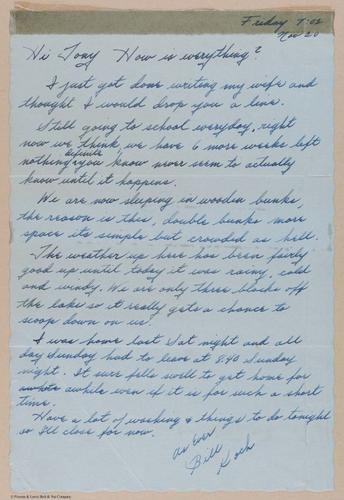 Friday 7:02
Nov 20
Hi Tony How is everything?
I just got done writing my wife and
thought I would drop you a line.
Still going to school everyday, right
now we think, we have 6 more weeks left
definite
nothing, you know never seem to actually
know until it happens.
We are now sleeping in wooden bunks,
the reason is this, double bunks more
space its simple but crowded as hell.
The weather up here has been fairly
good up until today it was rainy, cold
and windy. We are only three blocks off
the lake so it really gets a chance to
scoop down on us.
I was home last Sat night and all
day Sunday had to leave at 8:40 Sunday
night. It sure fells swell to get home for
awhile even if it is for such a short
time.
Have a lot of washing & things to do tonight
so I'll close for now.
as Ever
Bill